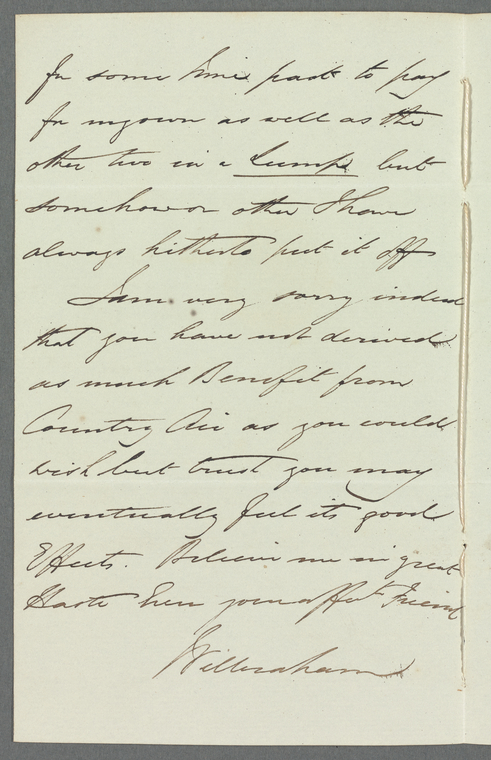 for some time past to pay
for my own as well as the
other two in a Lump but
somehow or other I have
always hitherto put it off
I am very sorry indeed
that you have not derived
as much Benefit from
Country Air as you could
wish but trust you may
eventually feel its good
Effects. Believe me in great
Haste Ever your affect Friend
Wilbraham